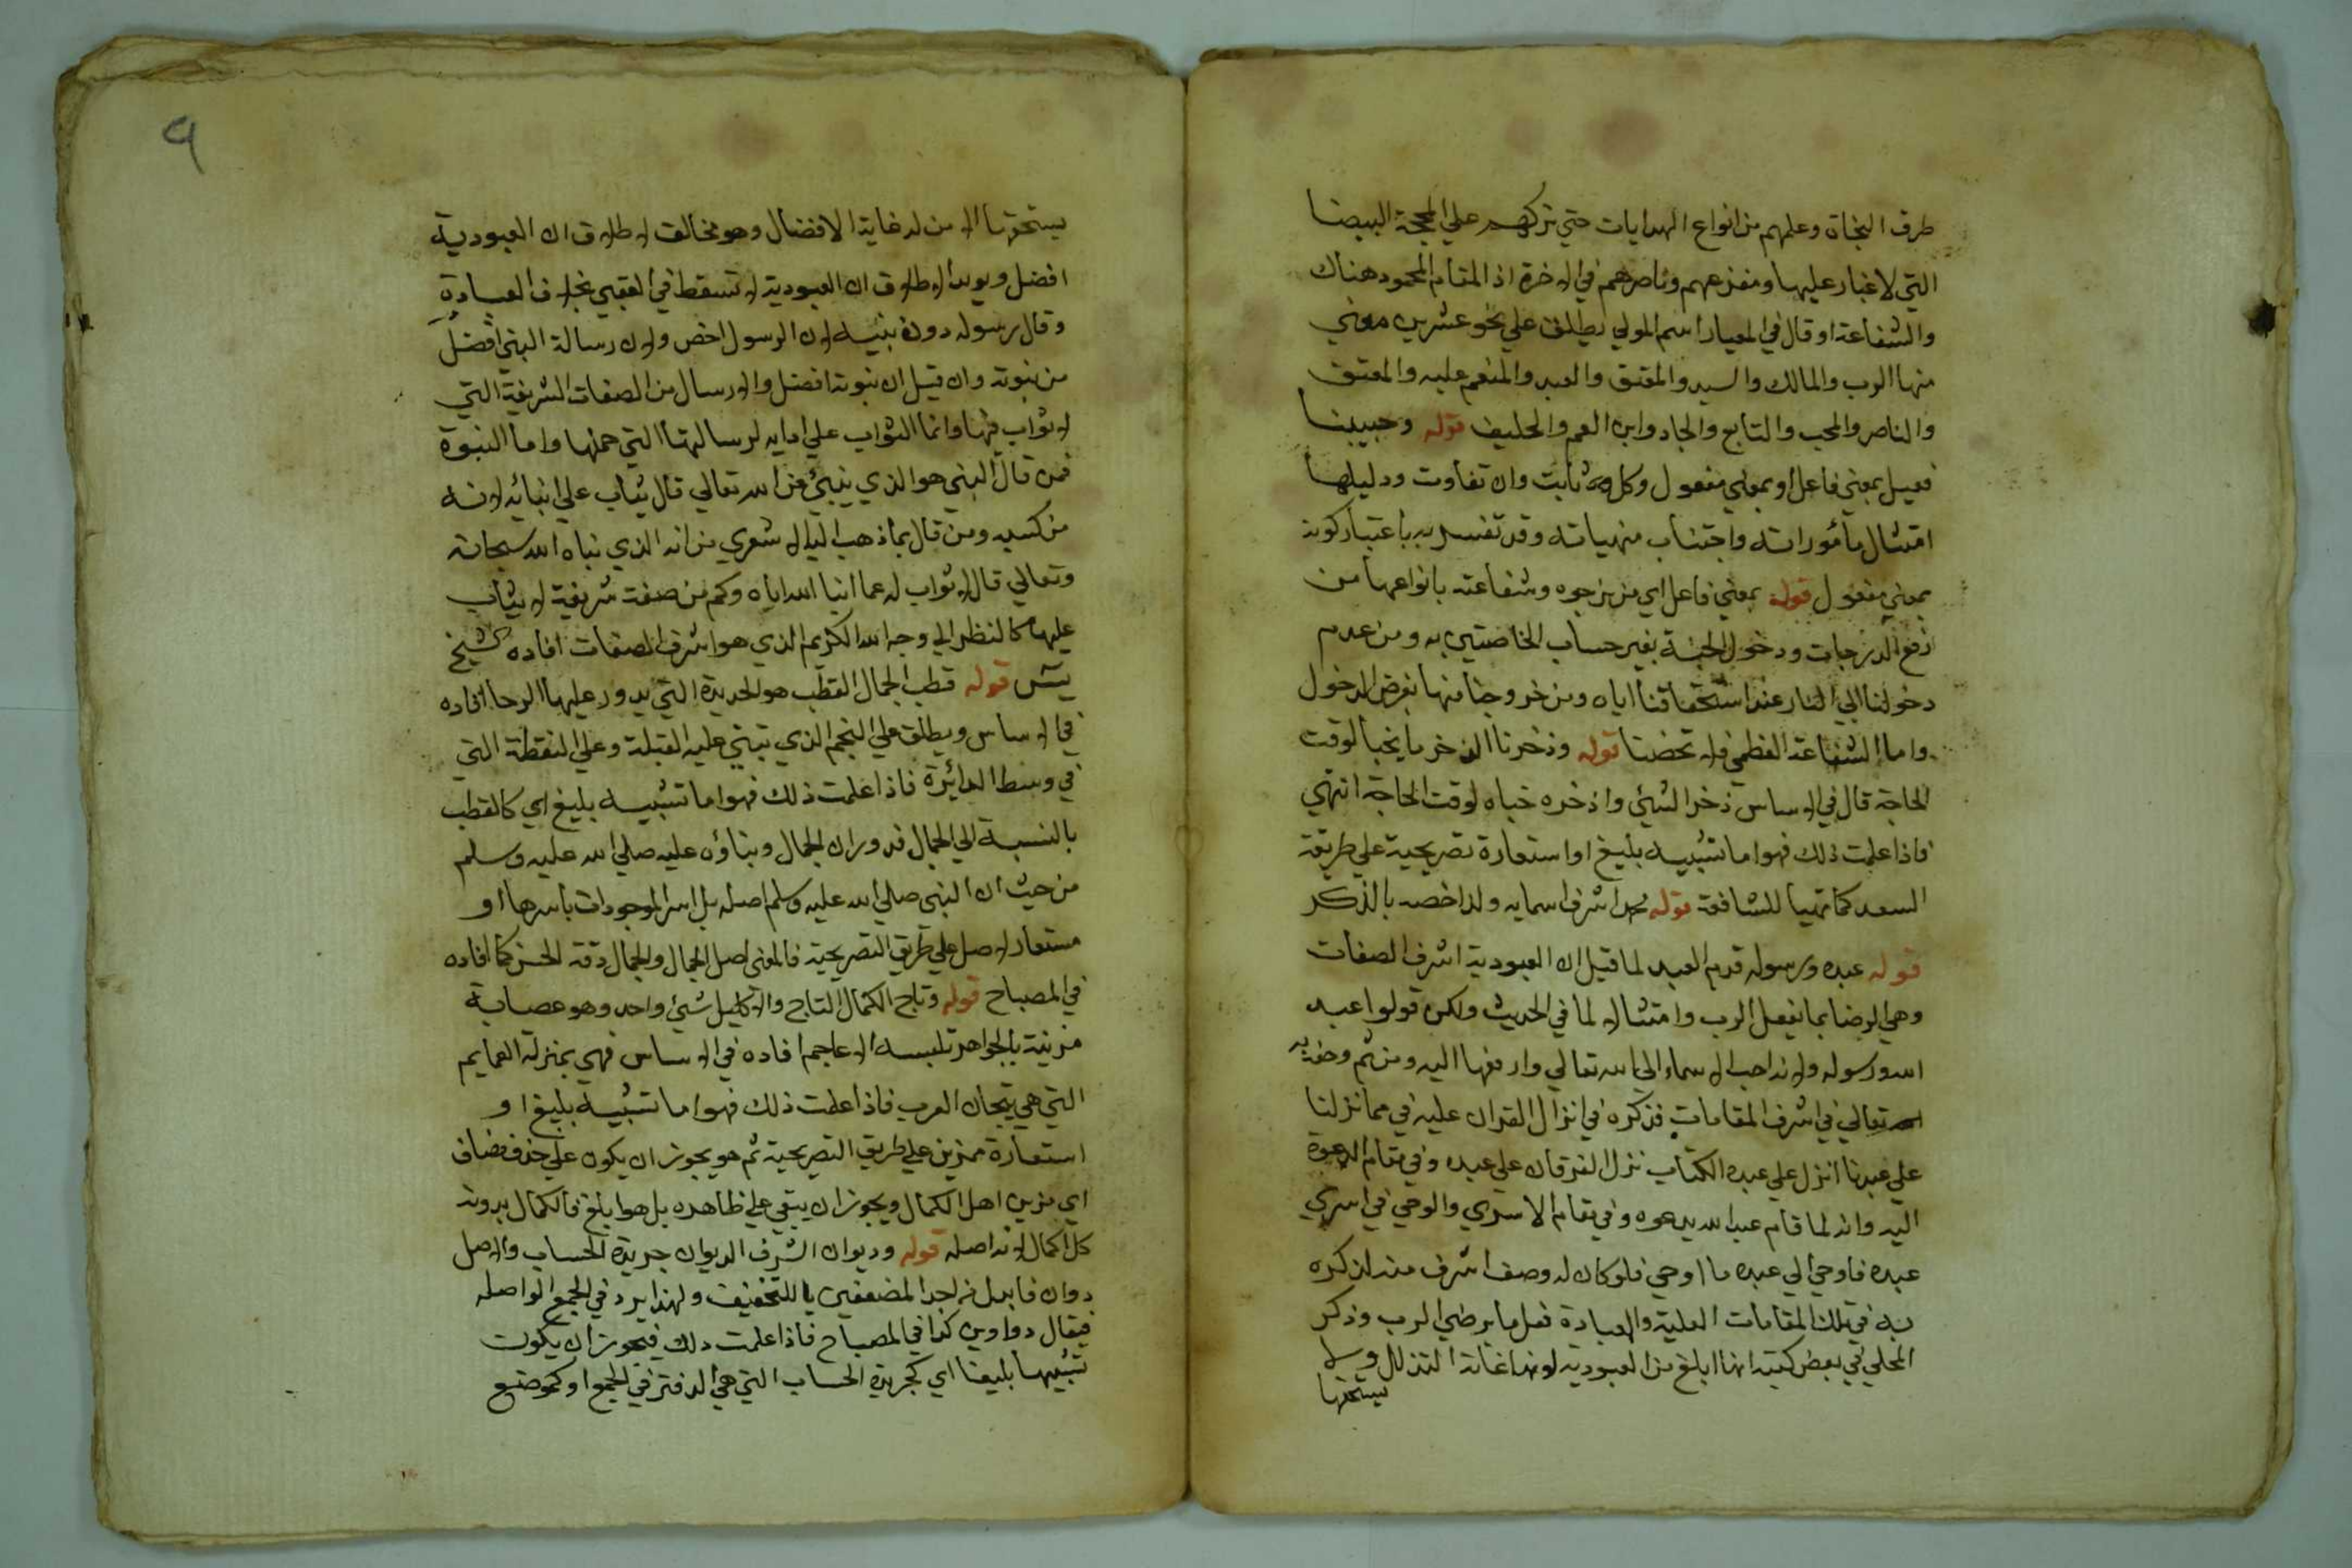 طرق النجاة وعلمهم من انواع الهدايات حتي تركهم علي المحجة البيضا
التي لا غبار عليها ومفزعهم وناصرهم في الاخرة اذ المقام المحمود هناك
والشفاعة او قال في المعيار اسم المولي يطلق علي نحو عشرين معني
منها الرب والمالك والسيد والمعتق والعبد والمنعم عليه والمعتق
والناصر والمحب والتابع والجار وابن العم والحليف قوله وحبيبنا
فعيل بمعني فاعل او بمعني مفعول وكل ثابت وان تفاوت ودليلها
امتثال مأموراته واجتناب منهياته وقد تفسر به باعتبار كونه
بمعني مفعول قوله بمعني فاعل اي من نرجوه وشفاعته بانواعها من
رفع الدرجات ودخول الجنة بغير حساب الخاصتين به ومن عدم
دخولنا الي النار عند استحقاقنا اياه ومن خروجنا منها بفرض الدخول
واما الشفاعة العظمي فلا تخصنا قوله وذخرنا الذخر ما يخبأ لوقت
الحاجة قال في الاساس ذخر الشيئ واذخره خباه لوقت الحاجة انتهي
فاذا علمت ذلك فهو اما تشبيه بليغ او استعارة تصريحية علي طريقة
السعد كما تهيا للشافعة قوله محمد اشرف اسمايه ولذا خصه بالذكر
قوله عبده ورسوله قدم العبد لما قيل ان العبودية اشرف الصفات
وهي الرضا بما يفعل الرب وامتثالا لما في الحديث ولكن قولوا عبد
الله ورسوله ولانه احب الاسماء الي الله تعالي وارفعها اليه ومن ثم وصفه به
تعالي في اشرف المقامات فذكره في انزال القران عليه في مما نزلنا
علي عبدنا انزل علي عبده الكتاب نزل الفرقان علي عبده وفي مقام الدعوة
اليه وانه لما قام عبد الله يدعوه وفي مقام الاسري والوحي في اسري
عبده فاوحي الي عبده ما اوحي فلو كان له وصف اشرف منه لذكره
به في تلك المقامات العلية والعبادة فعل ما يرضي الرب وذكر
المحلي في بعض كتبه انها ابلغ من العبودية لانها غاية التذلل ولا
يستحقها
٩
يستحقها الا من له غاية الافضال وهو مخالف لاطلاق ان العبودية
افضل ويويد الاطلاق ان العبودية لا تسقط في العقبي بخلاف العبادة
وقال رسوله دون نبيه لان الرسول اخص ولان رسالة النبي افضل
من نبوته وان قيل ان نبوته افضل والارسال من الصفات الشريفة التي
لا ثواب فيها وانما الثواب علي ادايه لرسالتها التي حملها واما النبوة
فمن قال النبي هو الذي ينبئ عن الله تعالي قال يثاب علي انبائه لانه
من كسبه ومن قال بما ذهب اليه الاشعري من انه الذي نباه الله سبحانه
وتعالي قال لا ثواب له عما انبا الله اياه وكم من صفة شريفة لا يثاب
عليها كالنظر الي وجه الله الكريم الذي هو اشرف الصفات افاده الشيخ
يس قوله قطب الجمال القطب هو الحديدة التي يدور عليها الرحا افاده
في الاساس ويطلق علي النجم الذي تبتني عليه القبلة وعلي النقطة التي
في وسط الدائرة فاذا علمت ذلك فهو اما تشبيه بليغ اي كالقطب
بالنسبة الي الجمال فدوران الجمال وبناؤه عليه صلي الله عليه وسلم
من حيث ان النبي صلي الله عليه وسلم اصله بل اس الموجودات باسرها او
مستعار لاصل علي طريق التصريحية فالمعني اصل الجمال والجمال دقة الحسن كما افاده
في المصباح قوله وتاج الكمال التاج والاكليل شيئ واحد وهو عصابة
مزينة بالجواهر تلبسه الاعاجم افاده في الاساس فهي بمنزلة العمايم
التي هي تيجان العرب فاذا علمت ذلك فهو اما تشبيه بليغ او
استعارة مزين علي طريق التصريحية ثم هو يجوز ان يكون علي حذف مضاف
اي مزين اهل الكمال ويجوز ان يبقي علي ظاهره بل هو ابلغ فالكمال بدونه
كلا كمال لانه اصله قوله وديوان الشرف الديوان جريدة الحساب والاصل
دوان فابدل من احد المضعفين يا للتخفيف ولهذا يرد في الجمع الي اصله
فيقال دواوين كذا في المصباح فاذا علمت ذلك فيجوز ان يكون
تشبيها بليغا اي كجريدة الحساب التي هي الدفتر في الجمع او كموضع